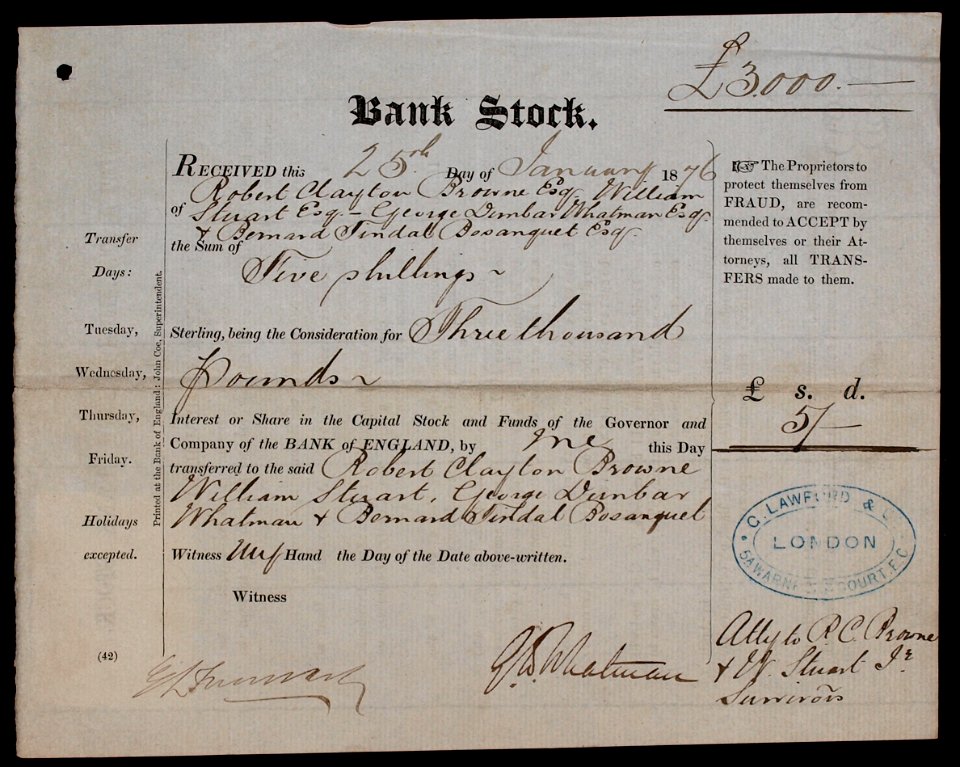 £3,000.—
Bank Stock.
RECEIVED this 25th Day of January 1876
of Robert Clayton Browne Esq. William
Stuart Esq – George Dunbar Whatman Esq
& Bernard Tindal Bosanquet Esq
the Sum of
Five shillings
Sterling, being the Consideration for Three thousand
Pounds
Interest or Share in the Capital Stock and Funds of the Governor and
Company of the BANK of ENGLAND, by me this Day
transferred to the said Robert Clayton Browne
William Stuart, George Dunbar
Whatman & Bernard Tindal Bosanquet
Witness my Hand the Day of the Date above-written.
Witness
G. D. Whatman
Transfer
Days:
Tuesday,
Wednesday,
Thursday,
Friday.
Holidays
excepted.
(42)
Printed at the Bank of England: John Coe, Superintendent.
☞ The Proprietors to
protect themselves from
FRAUD, are recom-
mended to ACCEPT by
themselves or their At-
torneys, all TRANS-
FERS made to them.
£ s. d.
5/–
C. LAWFORD &
LONDON
COURT, E.C.
Atty to R. C. Browne
& W. Stuart Jr.
Survivors